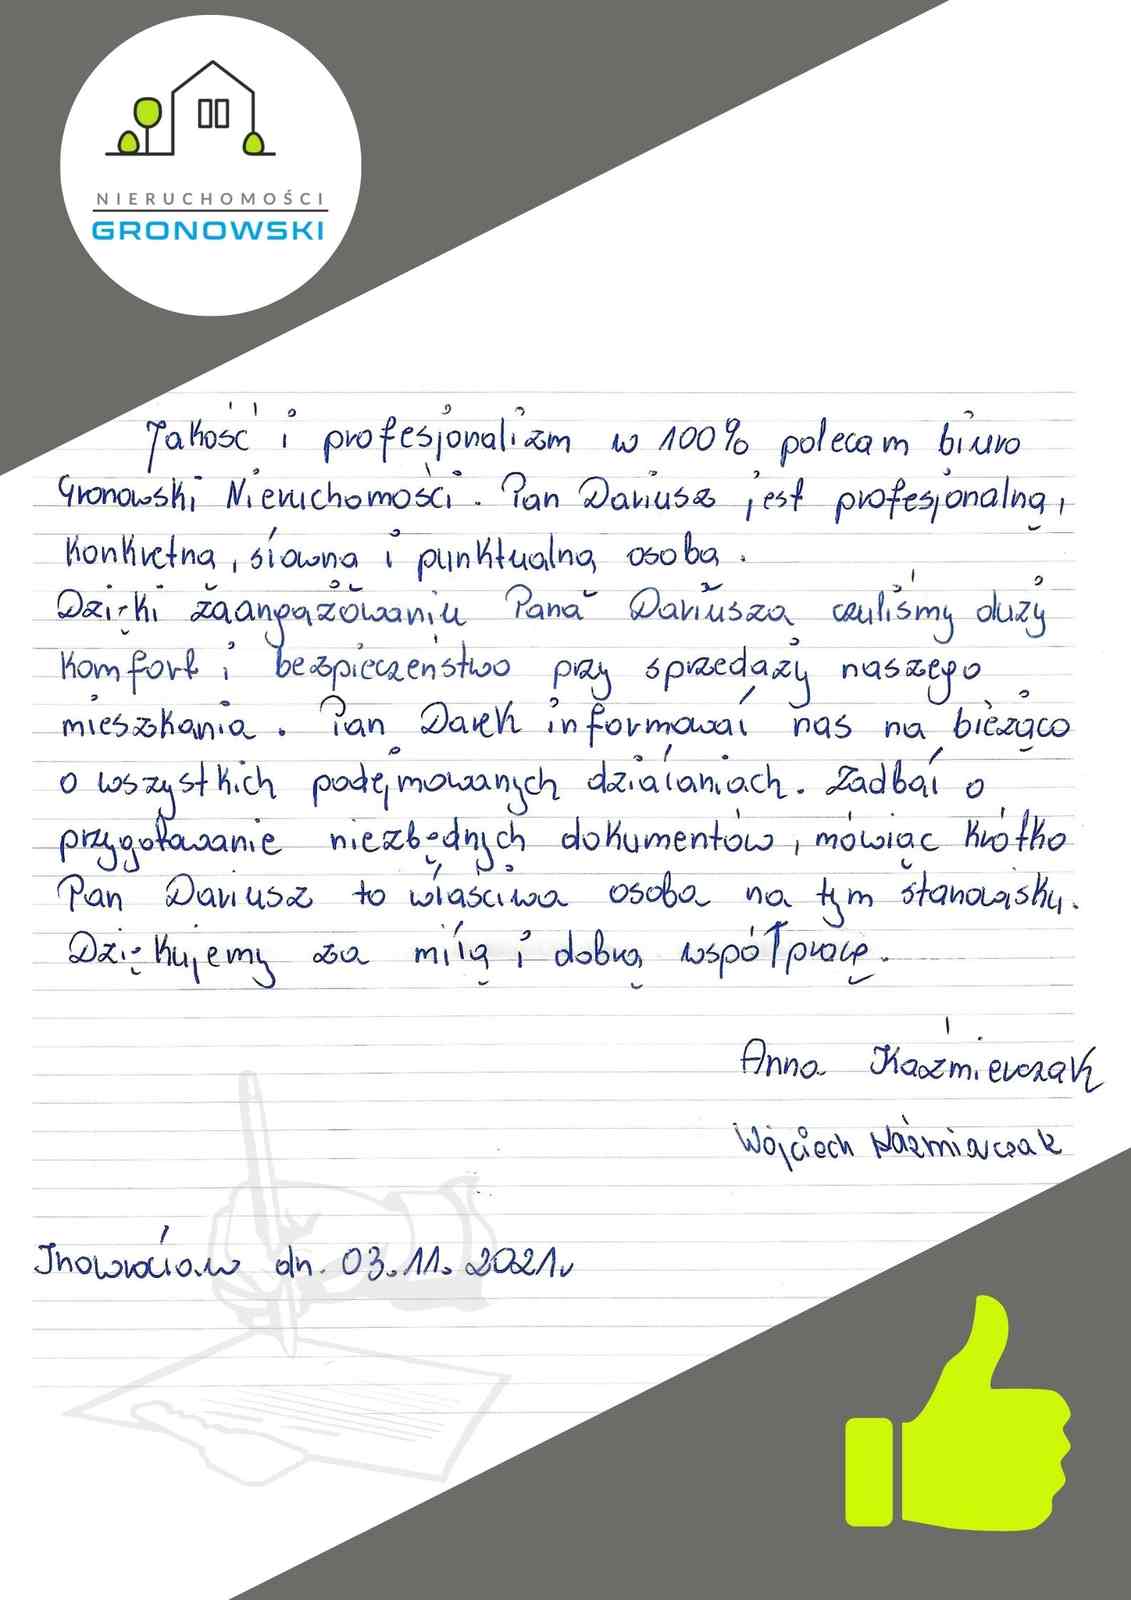 NIERUCHOMOŚCI
GRONOWSKI
Jakość i profesjonalizm w 100% polecam biuro
Gronowski Nieruchomości. Pan Dariusz jest profesjonalną,
konkretną, słowną i punktualną osobą.
Dzięki zaangażowaniu Pana Dariusza czuliśmy duży
komfort i bezpieczeństwo przy sprzedaży naszego
mieszkania. Pan Darek informował nas na bieżąco
o wszystkich podejmowanych działaniach. Zadbał o
przygotowanie niezbędnych dokumentów, mówiąc krótko
Pan Dariusz to właściwa osoba na tym stanowisku.
Dziękujemy za miłą i dobrą współpracę.
Anna Kaźmierczak
Wojciech Kaźmierczak
Inowrocław dn. 03.11.2021r